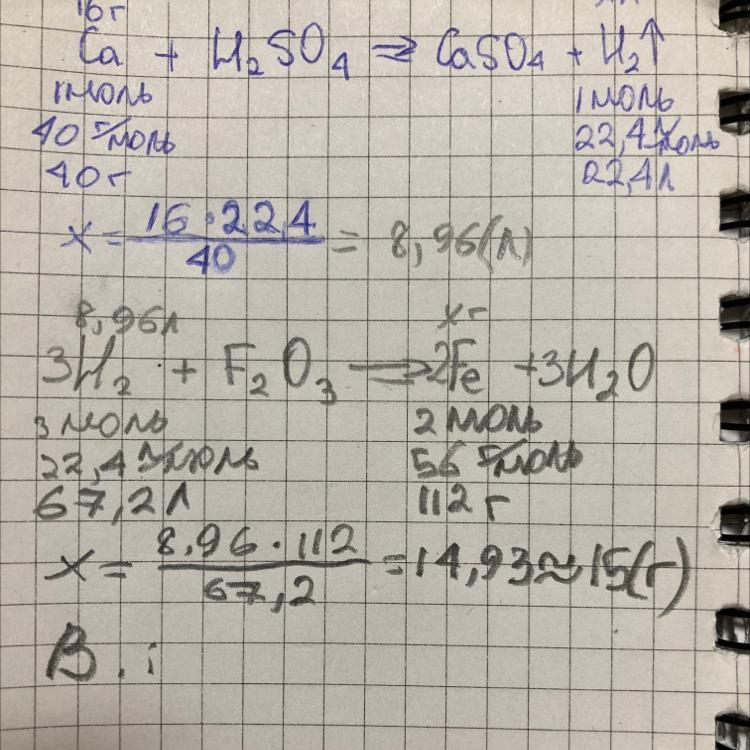 16г
Ca + H₂SO₄ ⇒ CaSO₄ + H₂↑
1моль 1моль
40 г/моль 22,4 л/моль
40г 22,4л
x = 16·22,4 / 40 = 8,96(л)
8,96л xг
3H₂ + F₂O₃ ⟹ 2Fe + 3H₂O
3 моль 2 моль
22,4 л/моль 56 г/моль
67,2л 112 г
x = 8,96·112 / 67,2 = 14,93 ≈ 15(г)
В.: